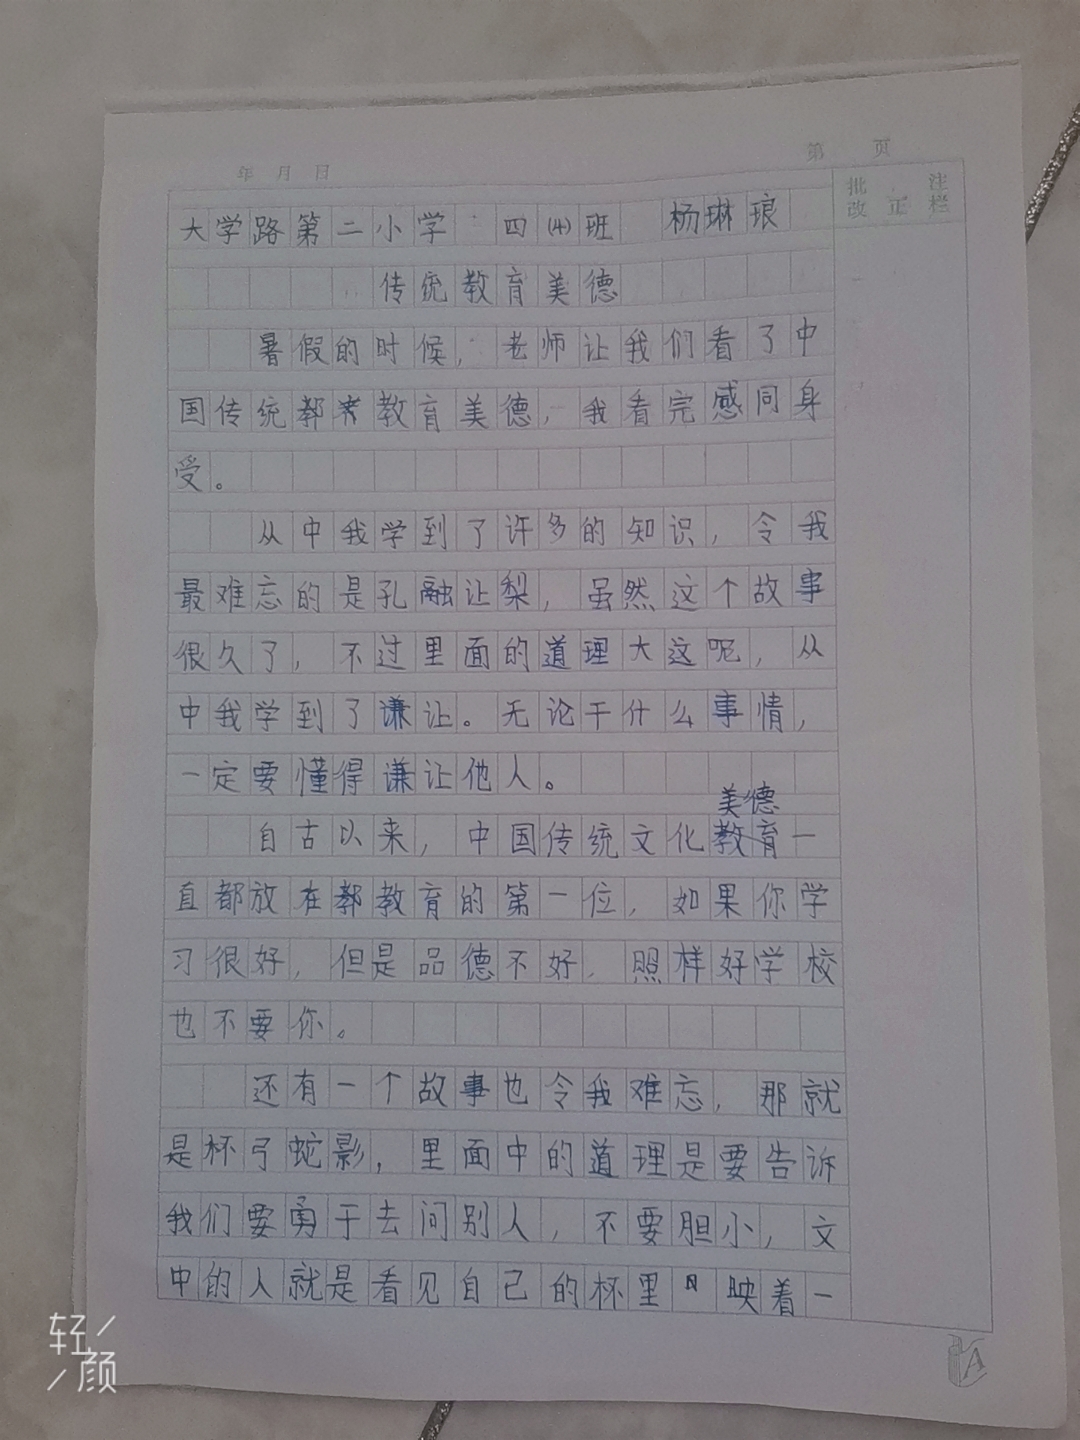 年 月 日
第 页
批 注
改 正 栏
大学路第二小学 四(4)班 杨琳琅
传统教育美德
暑假的时候，老师让我们看了中
国传统教育美德，我看完感同身
受。
从中我学到了许多的知识，令我
最难忘的是孔融让梨，虽然这个故事
很久了，不过里面的道理大这呢，从
中我学到了谦让。无论干什么事情，
一定要懂得谦让他人。
美德
自古以来，中国传统文化教育一
直都放在教育的第一位，如果你学
习很好，但是品德不好，照样好学校
也不要你。
还有一个故事也令我难忘，那就
是杯弓蛇影，里面中的道理是要告诉
我们要勇于去问别人，不要胆小，文
中的人就是看见自己的杯里映着一
轻颜
A